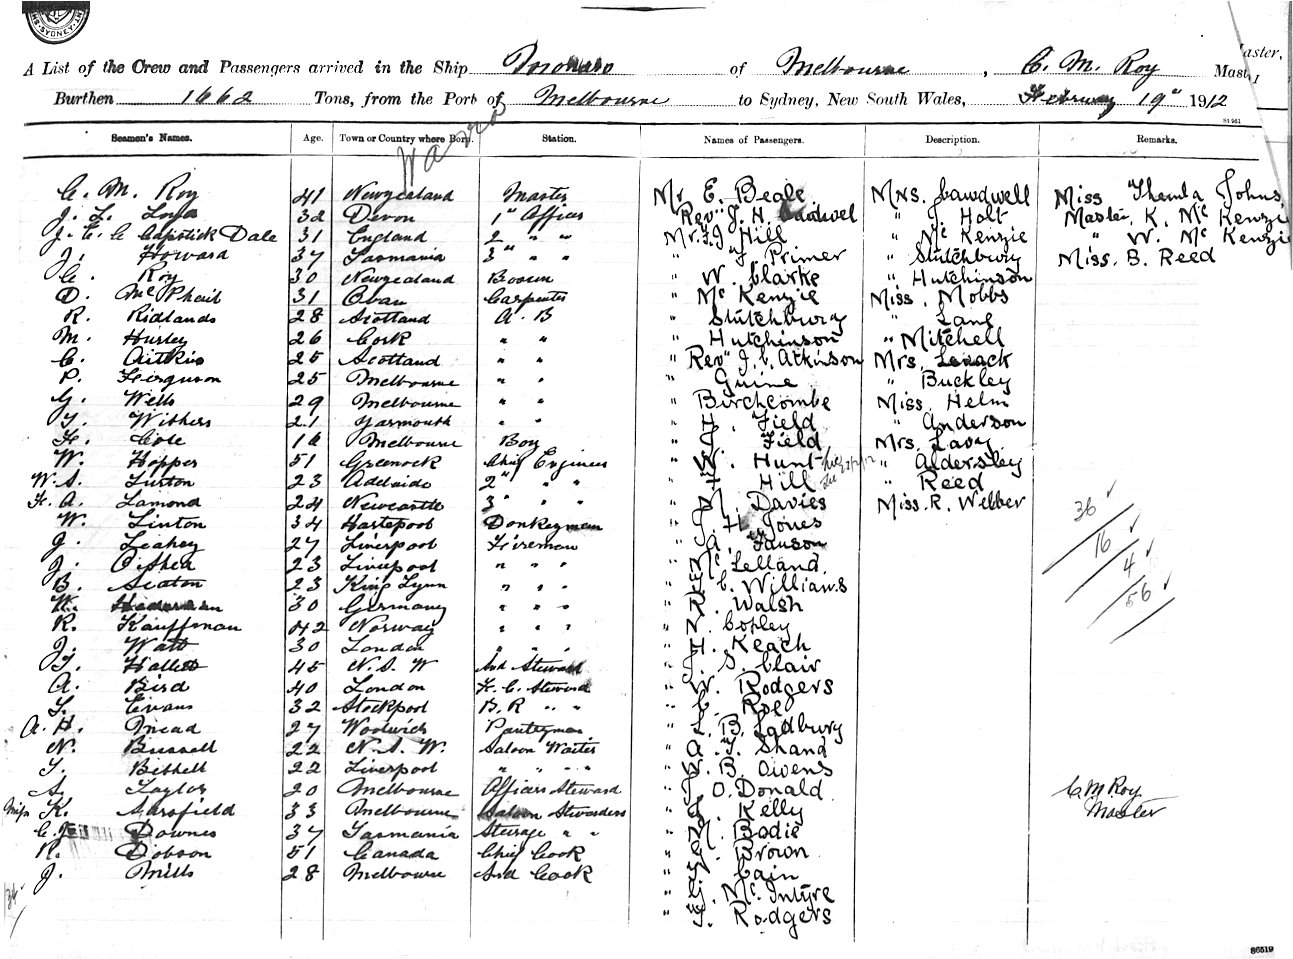 SYDNEY
A List of the Crew and Passengers arrived in the Ship of Melbourne, C. M. Roy Master,
Burthen 1662 Tons, from the Port of Melbourne to Sydney, New South Wales, February 19" 1912
Seamen's Names. Age. Town or Country where Born. Station. Names of Passengers. Description. Remarks.
C. M. Roy 41 Newzealand Master Mr E. Beale Mrs. Cawdwell Miss Thelma Johns
J. L. 32 Devon 1" Officer " Rev" J. H. Cardwel " J. Holt Master K. Mc Kenzie
J. E. C Capstick Dale 31 England 2 " " Mr. J Hill " Mc Kenzie " W. Mc Kenzie
J. Howard 37 Tasmania 3 " " " J. Primer " Stutchbury Miss. B. Reed
C. Roy 30 Newzealand Bosun " W. Clarke " Hutchinson
D. McPhail 31 Oban Carpenter " Mc Kenzie Miss. Mobbs
R. Ridlands 28 Scotland A. B " Stutchbury " Lane
M. Hurley 26 Cork " " " Hutchinson " Mitchell
C. Aitkin 25 Scotland " " " Rev" J. C. Atkinson Mrs. Levack
P. Ferguson 25 Melbourne " " " Guine " Buckley
G. Wells 29 Melbourne " " " Birchcombe Miss. Helm
T. Withers 21 Yarmouth " " " Field " Anderson
H. Cole 16 Melbourne Boy " Field Mrs. Lavy
W. Hopper 51 Greenock Chief Engineer " Hunt " Aldersley
W. S. Linton 23 Adelaide 2" " " " Hill " Reed
H. A. Lamond 24 Newcastle 3" " " " Davies Miss. R. Webber
W. Linton 34 Hartepool Donkeyman " J. H. Jones 36
J. Leahey 27 Liverpool Fireman " A. 16
J. O'Shea 23 Liverpool " " " " Mc Lelland 4
B. Seaton 23 King Lynn " " " " C. Williams 56
30 Germany " " " " Walsh
R. Kauffman 42 Norway " " " " Copley
J. Watt 30 London " " " " H. Keach
T. Hallett 45 N. S. W 2nd Steward " J. S. Clair
A. Bird 40 London F. C. Steward " W. Rodgers
T. Evans 32 Stockpool B. R " " " C. Roe
A. H. Mead 27 Woolwich Pantryman " B. Ladbury
N. Bussell 22 N. S. W. Saloon Waiter " A. T. Shand
T. Bithell 22 Liverpool " " " " B. Owens
S. Taylor 20 Melbourne Officers Steward " O. Donald C. M Roy
Miss K. Sarsfield 33 Melbourne Saloon Stwardess " Kelly Master
C. J. Downes 37 Tasmania Sterage " " " Bodie
R. Dobson 51 Canada Chief Cook " Brown
J. Mills 28 Melbourne 2nd Cook " Cain
34 " Mc. Intyre
" Rodgers
86519